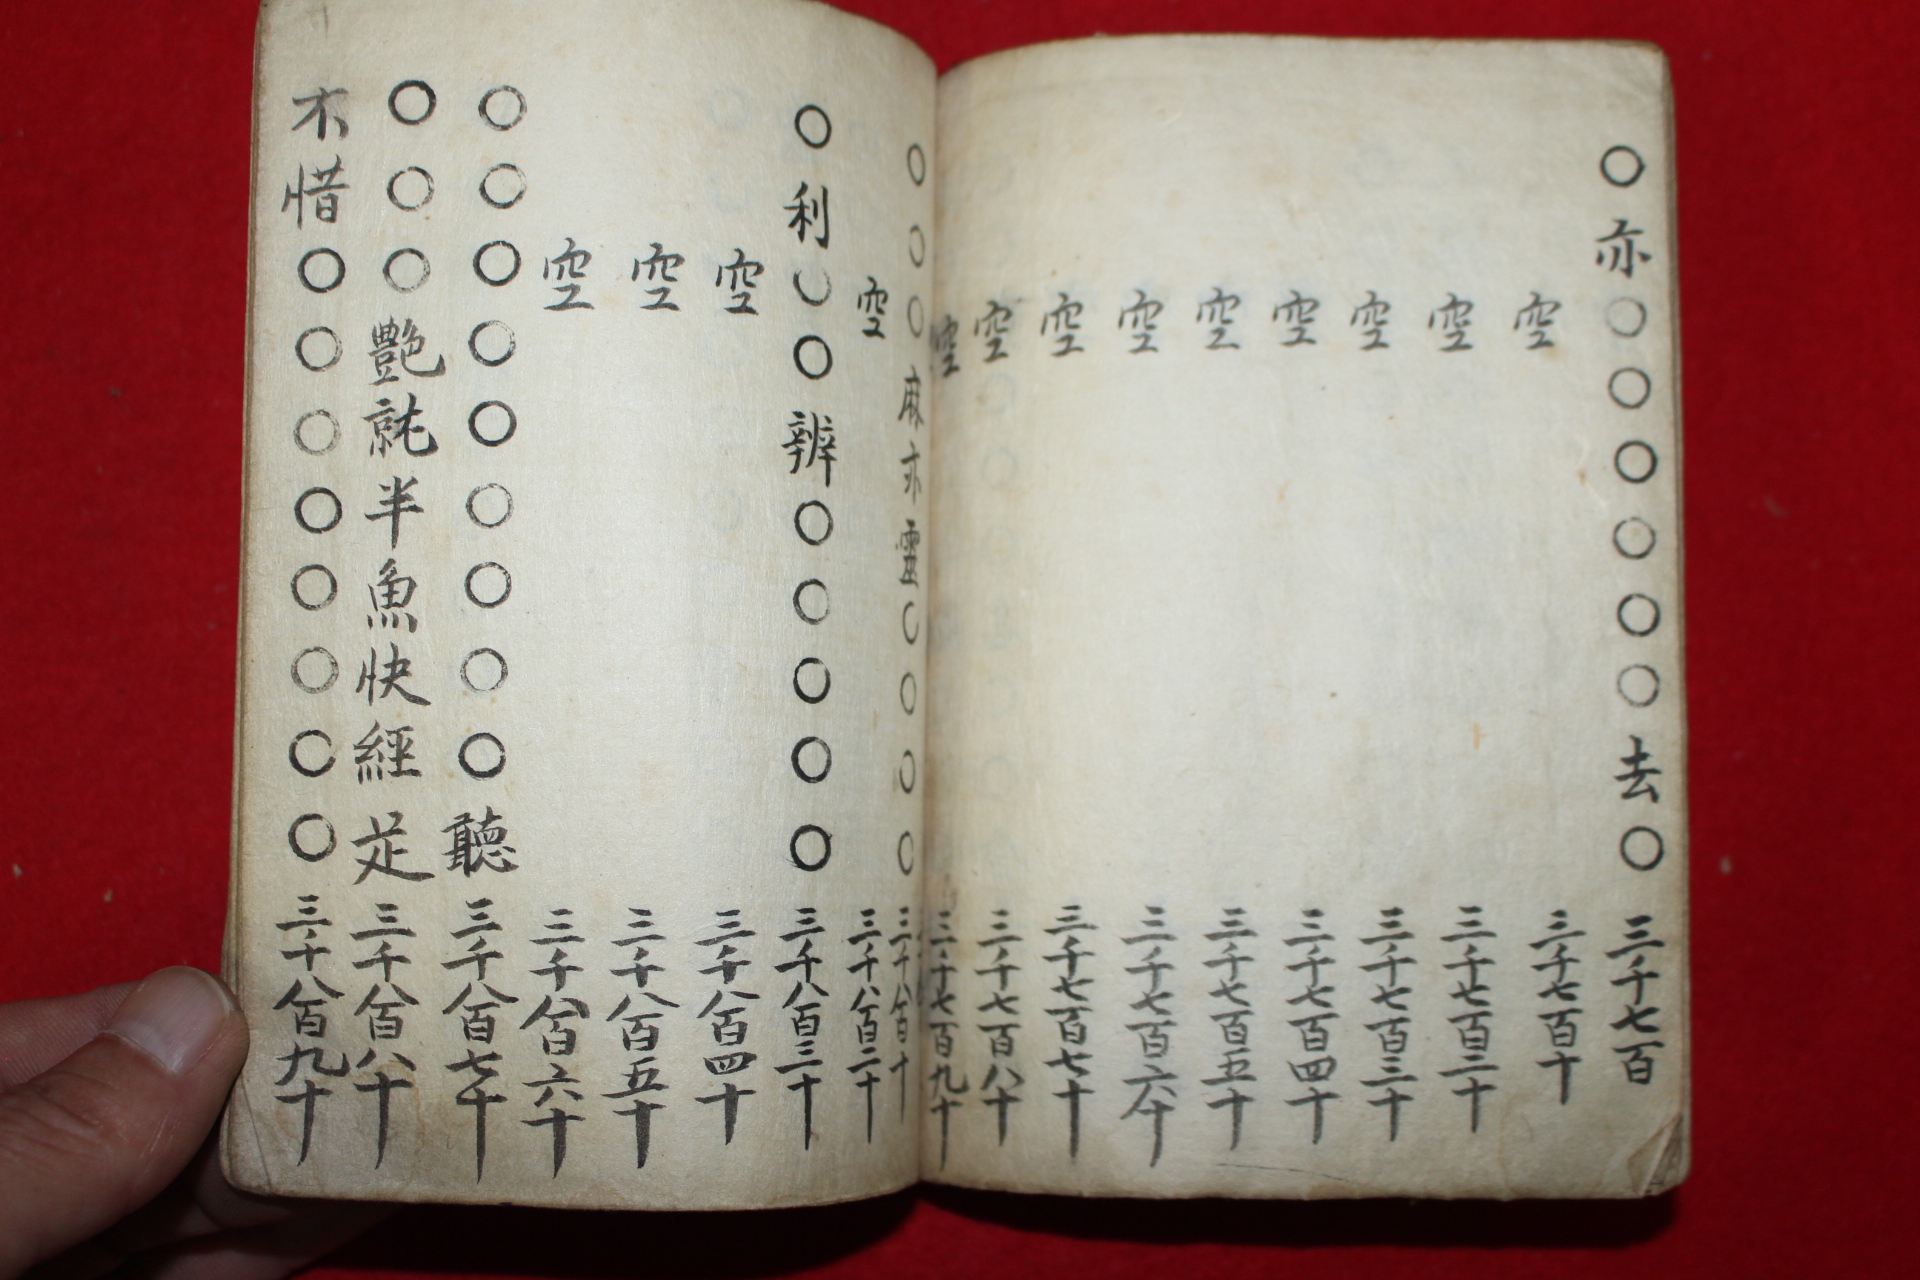 ○亦○○○○○○去○ 三千七百
空 三千七百十
空 三千七百二十
空 三千七百三十
空 三千七百四十
空 三千七百五十
空 三千七百六十
空 三千七百七十
空 三千七百八十
空 三千七百九十
○○○麻亦靈○○○○ 三千八百十
空 三千八百二十
○利○○辨○○○○○ 三千八百三十
空 三千八百四十
空 三千八百五十
空 三千八百六十
○○○○○○○○○聽 三千八百七十
○○○艶半魚快經 三千八百八十
不惜○○○○○○○○ 三千八百九十